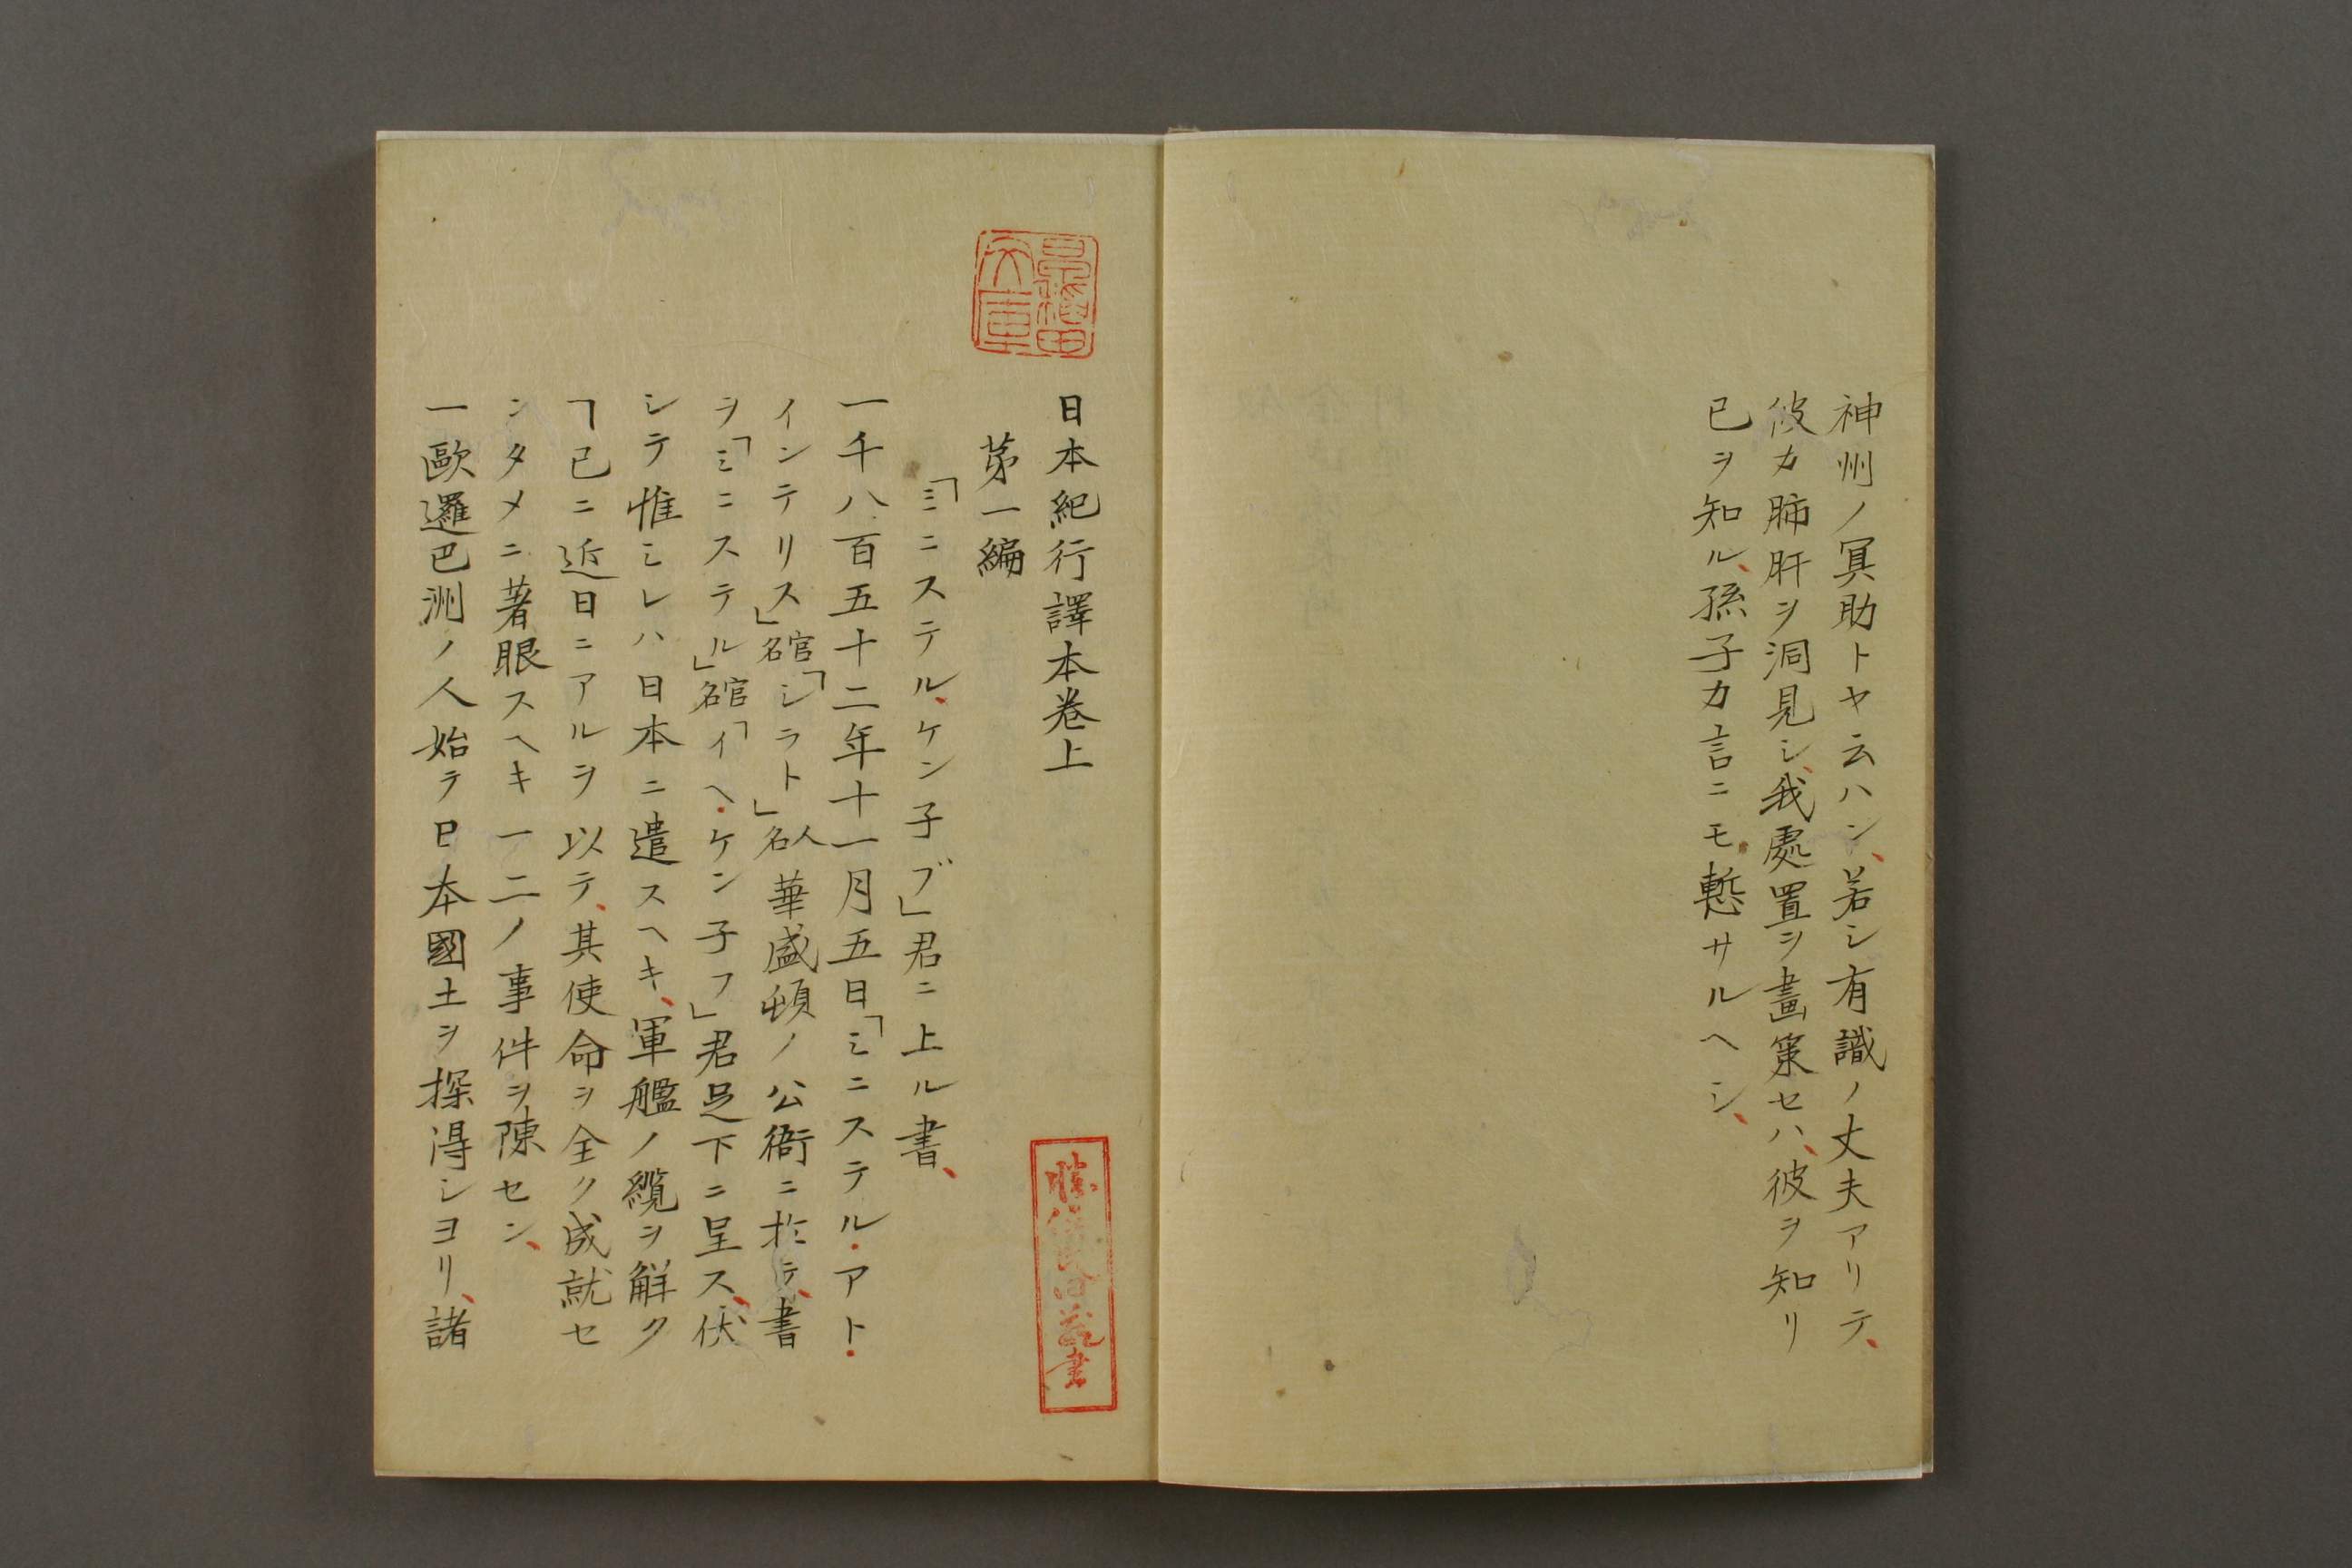 神州ノ冥助トヤ云ハン、若シ有識ノ丈夫アリテ、
彼カ肺肝ヲ洞見シ、我處置ヲ畫策セハ、彼ヲ知リ
已ヲ知ル、孫子カ言ニモ慙サルヘシ、
日本紀行譯本卷上
苐一編
「ミニステル、ケン子ブ」君ニ上ル書、
一千八百五十二年十一月五日「ミニステル・アト・
インテリス」官名「シラト」人名華盛頓ノ公衙ニ於テ、書
ヲ「ミニステル」官名「イヘ・ケン子フ」君足下ニ呈ス、伏
シテ惟ミレハ日本ニ遣スヘキ、軍艦ノ纜ヲ解ク
ヿ已ニ近日ニアルヲ以テ、其使命ヲ全ク成就セ
ンタメニ著眼スヘキ一二ノ事件ヲ陳セン、
一歐邏巴洲ノ人始テ日本國土ヲ探得シヨリ、諸
早稲田
文庫